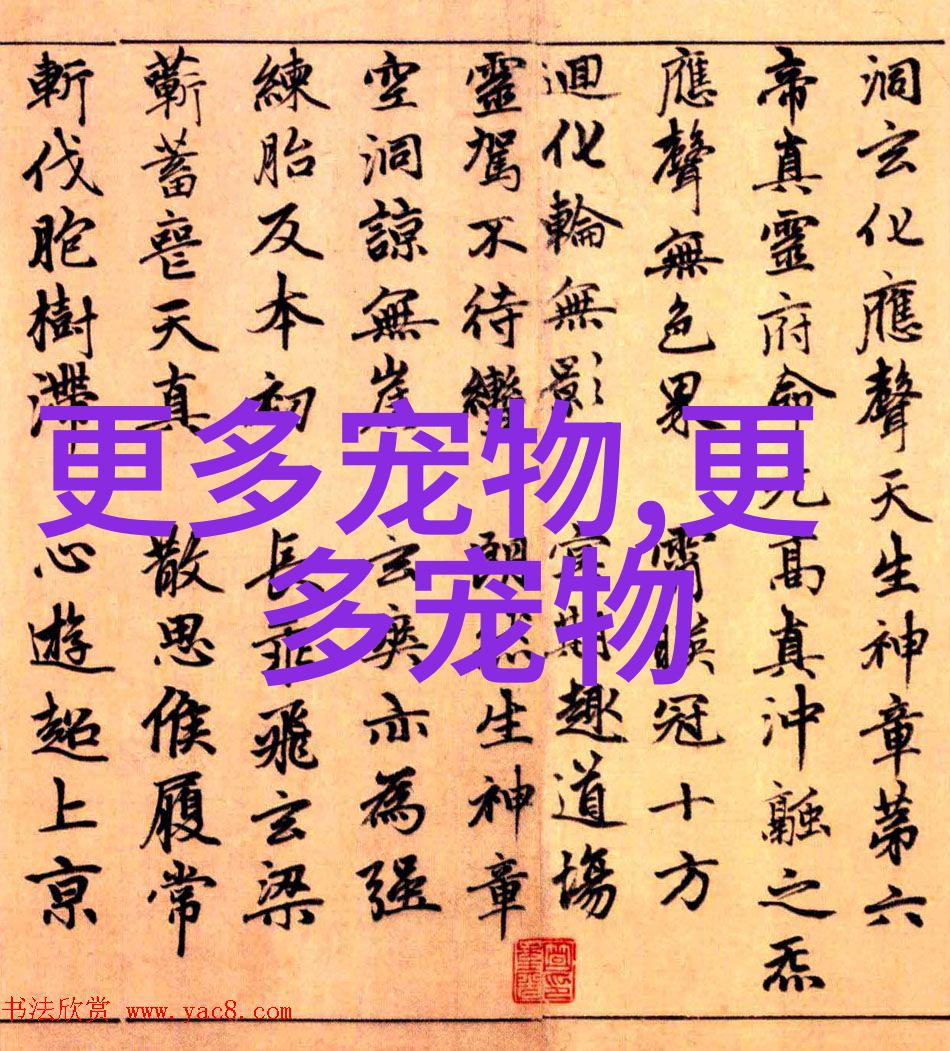 洞玄化應聲天生神章第六
帝真靈府命元高真沖融之炁
應聲無色界 霄映冠十方
迴化輪無影 冥期趣道場
靈駕不待轡 朗然生神章
空洞諒無崖 玄爽亦為强
練胎反本初 長乖飛玄梁
蘄蓄喪天真 散思候履常
斬伐胞樹滯 心遊超上京
更多宠物,更
多宠物
书法欣赏 www.yac8.com